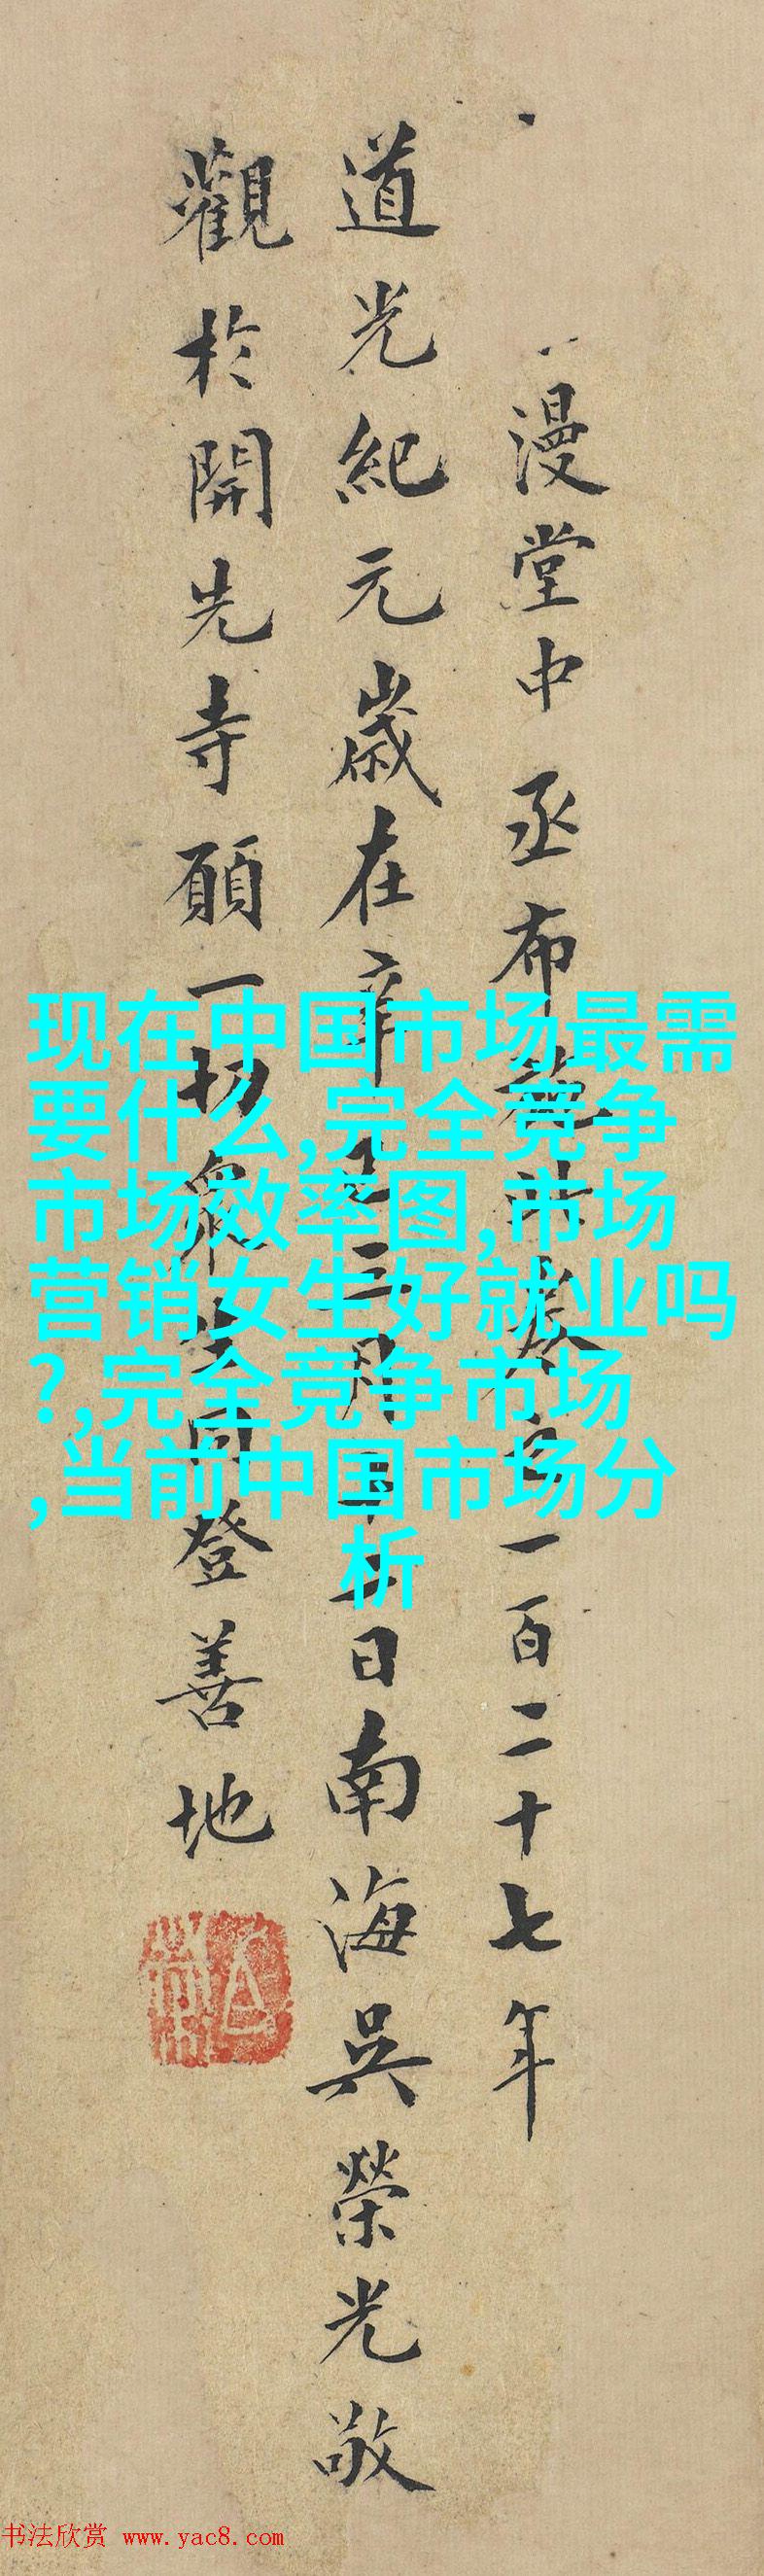 漫堂中丞布施卷一百二十七年
道光紀元歲在辛巳三月日南海吳榮光敬
觀於開先寺願一切衆生同登善地
现在中国市场最需
要什么,完全竞争
市场效率图,市场
营销女生好就业吗
?,完全竞争市场
,当前中国市场分
析
书法欣赏 www.yac8.com